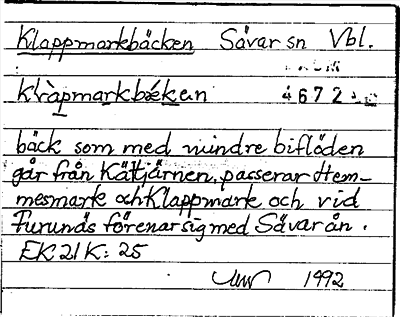 Klappmarkbäcken Sävar sn Vbl.
klàpmarkbækan 4672
bäck som med mindre biflöden
går från Kältjärnen, passerar Hem-
mesmark och Klappmark och vid
Furunäs förenar sig med Sävarån.
EK 21 K: 25
1992